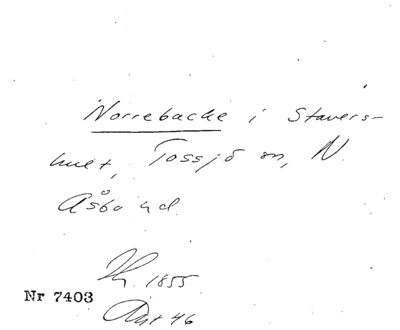 Norrebacke i Stavers-
hult, Tossjö sn, N.
Åsbo hd.
Hy. 1855
Nr 7403
Ant 46